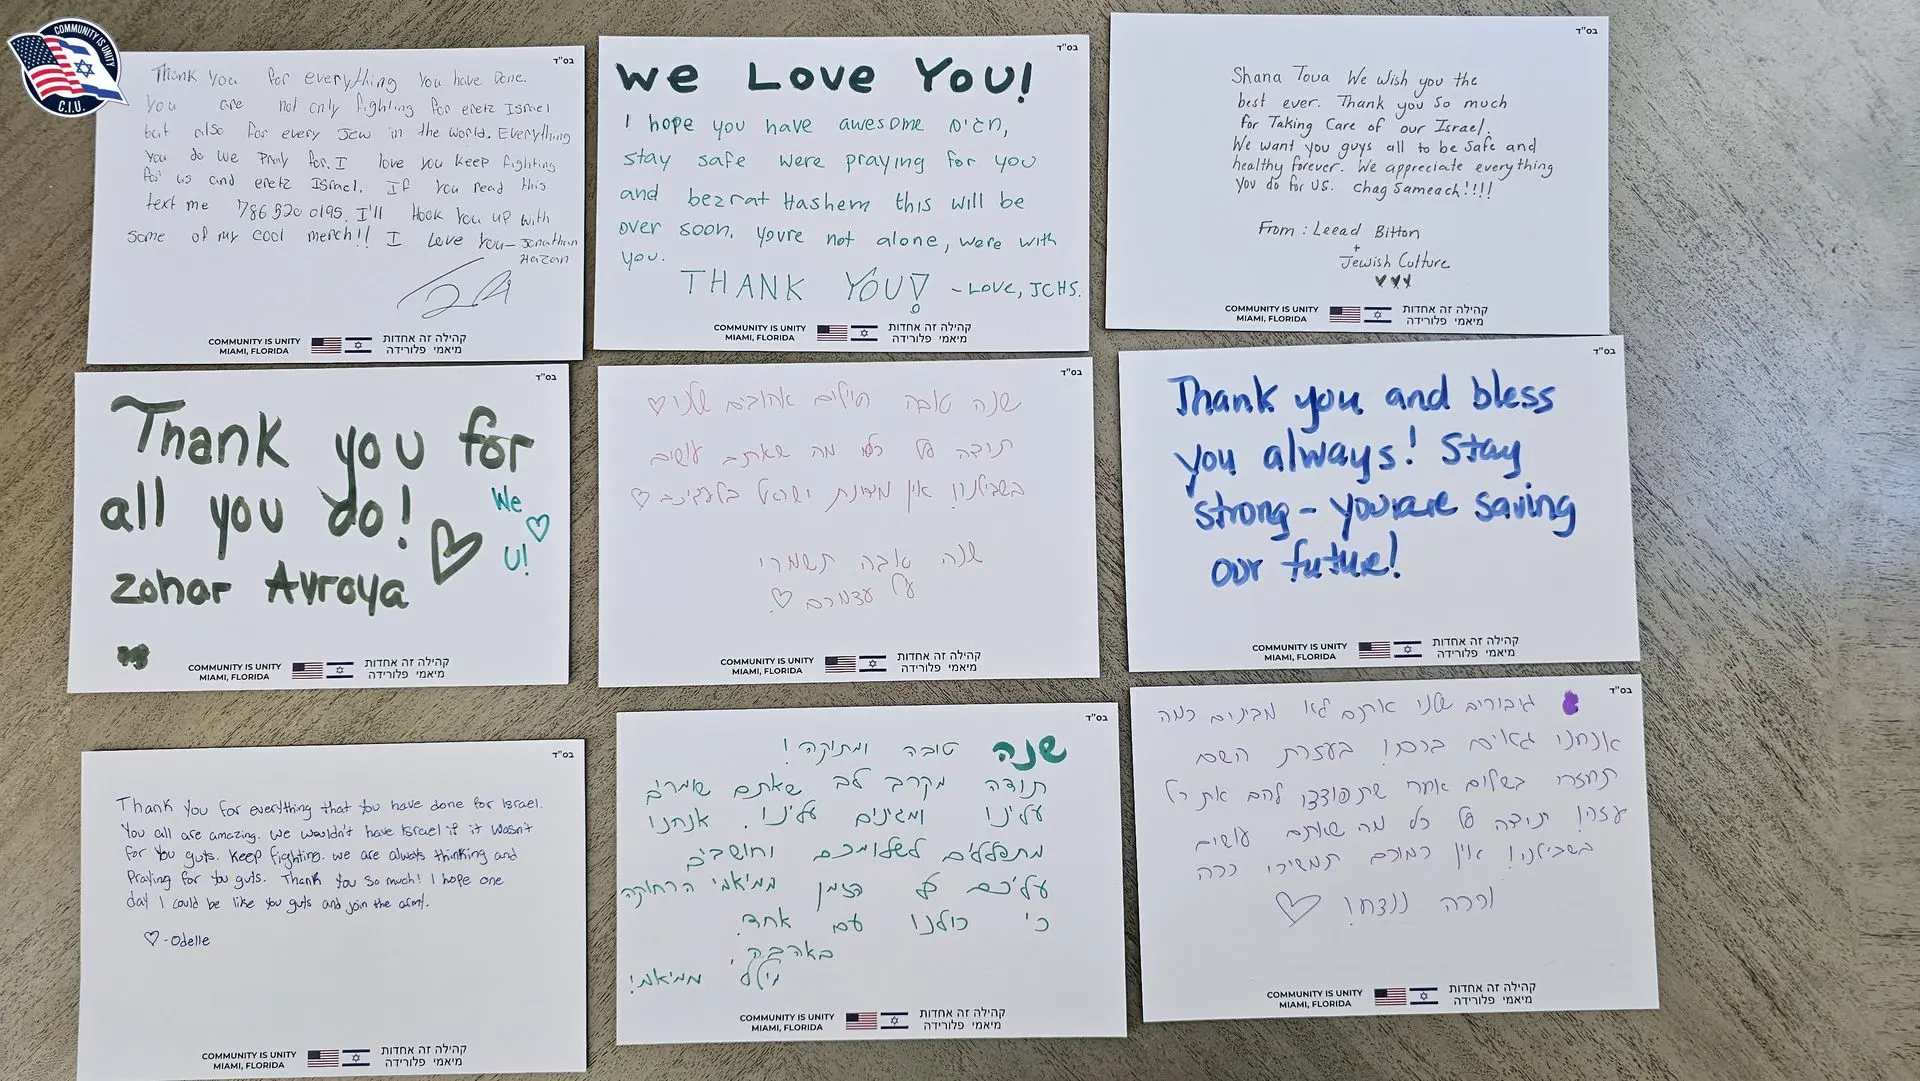 COMMUNITY IS UNITY
C.I.U.
בס"ד
Thank you for everything you have Done.
You are not only fighting for eretz Israel
but also for every Jew in the world. Everything
you do we Pray for. I love you keep fighting
for us and eretz Israel. If you read this
text me 786 520 0195. I'll Hook you up with
some of my cool merch!! I Love You- Jonathan
Hazan
COMMUNITY IS UNITY
MIAMI, FLORIDA
קהילה זה אחדות
מיאמי פלורידה
בס"ד
We Love You!
I hope you have awesome חגים,
stay safe were praying for you
and bezrat Hashem this will be
over soon. youre not alone, were with
you.
THANK YOU! - Love, JCHS.
COMMUNITY IS UNITY
MIAMI, FLORIDA
קהילה זה אחדות
מיאמי פלורידה
בס"ד
Shana Tova We Wish you the
best ever. Thank you so much
for Taking Care of our Israel.
We want you guys all to be safe and
healthy forever. We appreciate everything
you do for us. Chag Sameach!!!!
From: Leead Bitton
+
Jewish Culture
COMMUNITY IS UNITY
MIAMI, FLORIDA
קהילה זה אחדות
מיאמי פלורידה
בס"ד
Thank you for
all you do!
Zohar Avraya
We
U!
COMMUNITY IS UNITY
MIAMI, FLORIDA
קהילה זה אחדות
מיאמי פלורידה
בס"ד
שנה טובה חיילים אהובים שלנו
תודה על כל מה שאתם עושים
בשבילנו! אין מדינת ישראל בלעדיכם
שנה טובה תשמרו
על עצמכם
COMMUNITY IS UNITY
MIAMI, FLORIDA
קהילה זה אחדות
מיאמי פלורידה
בס"ד
Thank you and bless
you always! Stay
strong - you are saving
our future!
COMMUNITY IS UNITY
MIAMI, FLORIDA
קהילה זה אחדות
מיאמי פלורידה
בס"ד
Thank you for everything that you have done for Israel.
You all are amazing. We wouldn't have Israel if it wasn't
for you guys. Keep fighting. we are always thinking and
Praying for you guys. Thank you so much! I hope one
day I could be like you guys and join the army.
- Odelle
COMMUNITY IS UNITY
MIAMI, FLORIDA
קהילה זה אחדות
מיאמי פלורידה
בס"ד
שנה טובה ומתוקה!
תודה מקרב לב שאתם שומרים
עלינו ומגינים עלינו. אנחנו
מתפללים לשלומכם וחושבים
עליכם כל הזמן ממיאמי הרחוקה
כי כולנו עם אחד.
באהבה,
ממיאמי!
COMMUNITY IS UNITY
MIAMI, FLORIDA
קהילה זה אחדות
מיאמי פלורידה
בס"ד
גיבורים שלנו אתם לא מבינים כמה
אנחנו גאים בכם! בעזרת השם
תחזרו בשלום אחרי שתפוצצו להם את כל
עזה! תודה על כל מה שאתם עושים
בשבילנו! אין כמוכם תמשיכו ככה
וככה ננצח!
COMMUNITY IS UNITY
MIAMI, FLORIDA
קהילה זה אחדות
מיאמי פלורידה